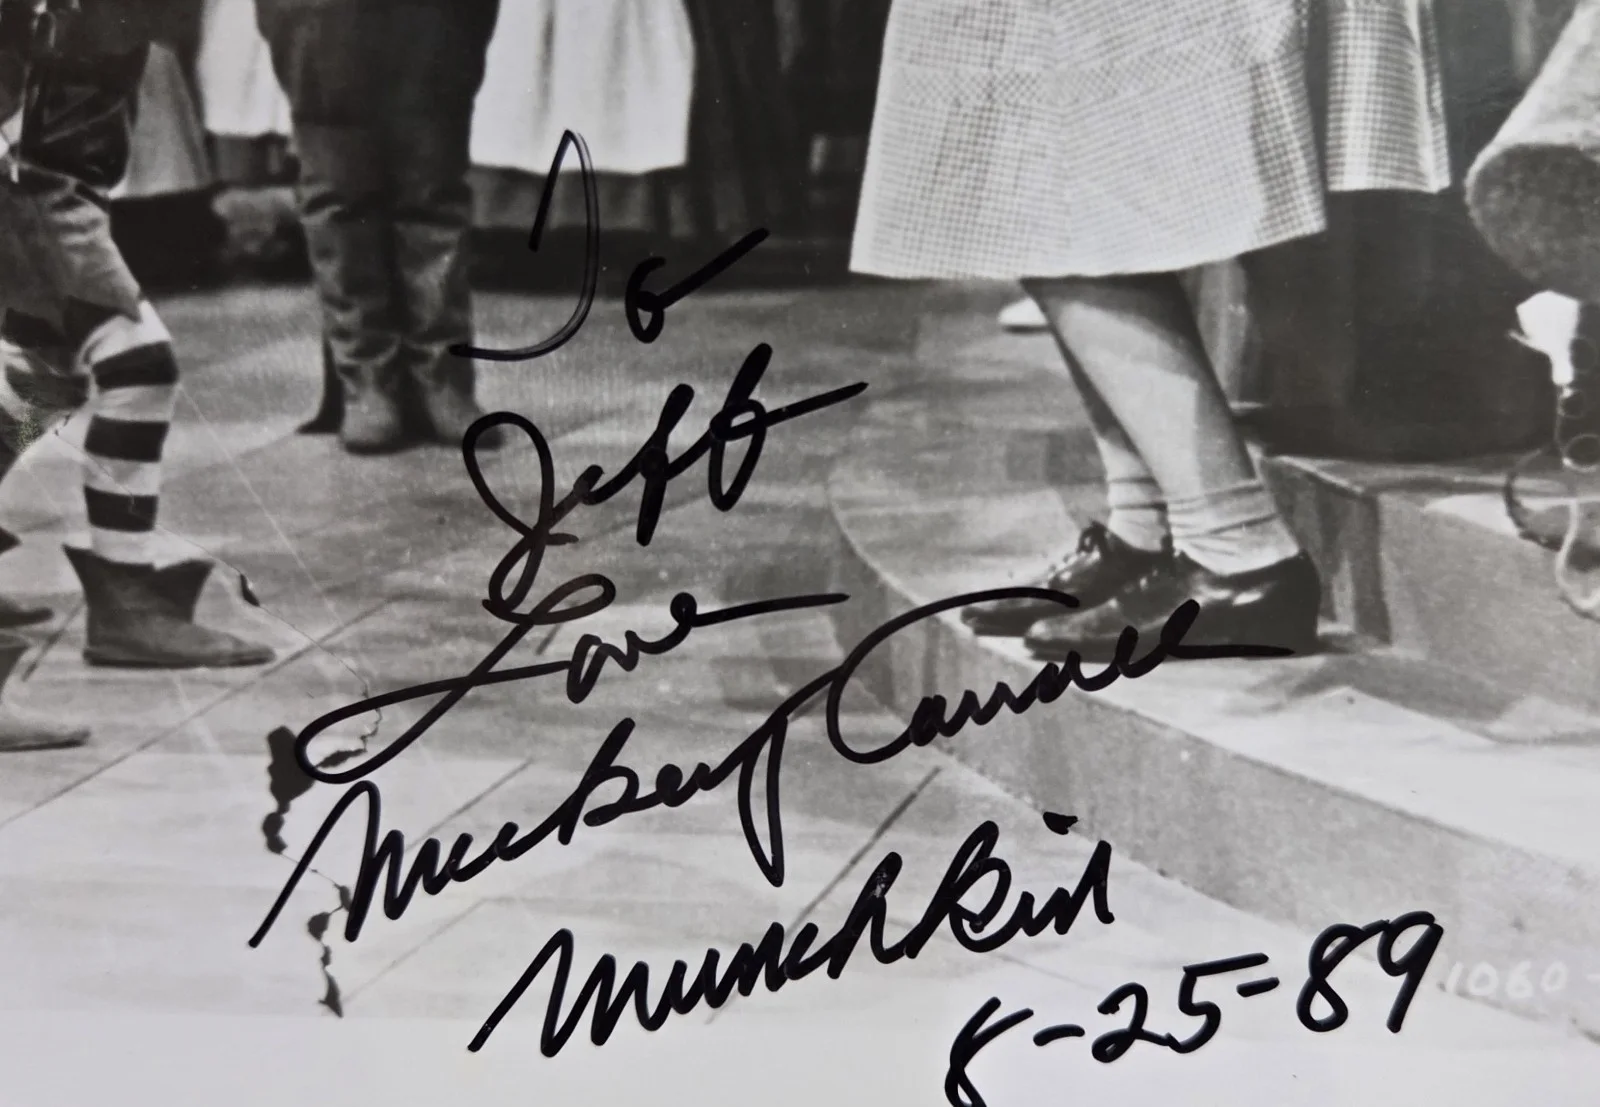 To
Jeff
Love
Mickey Carroll
Munchkin
8-25-89
1060-